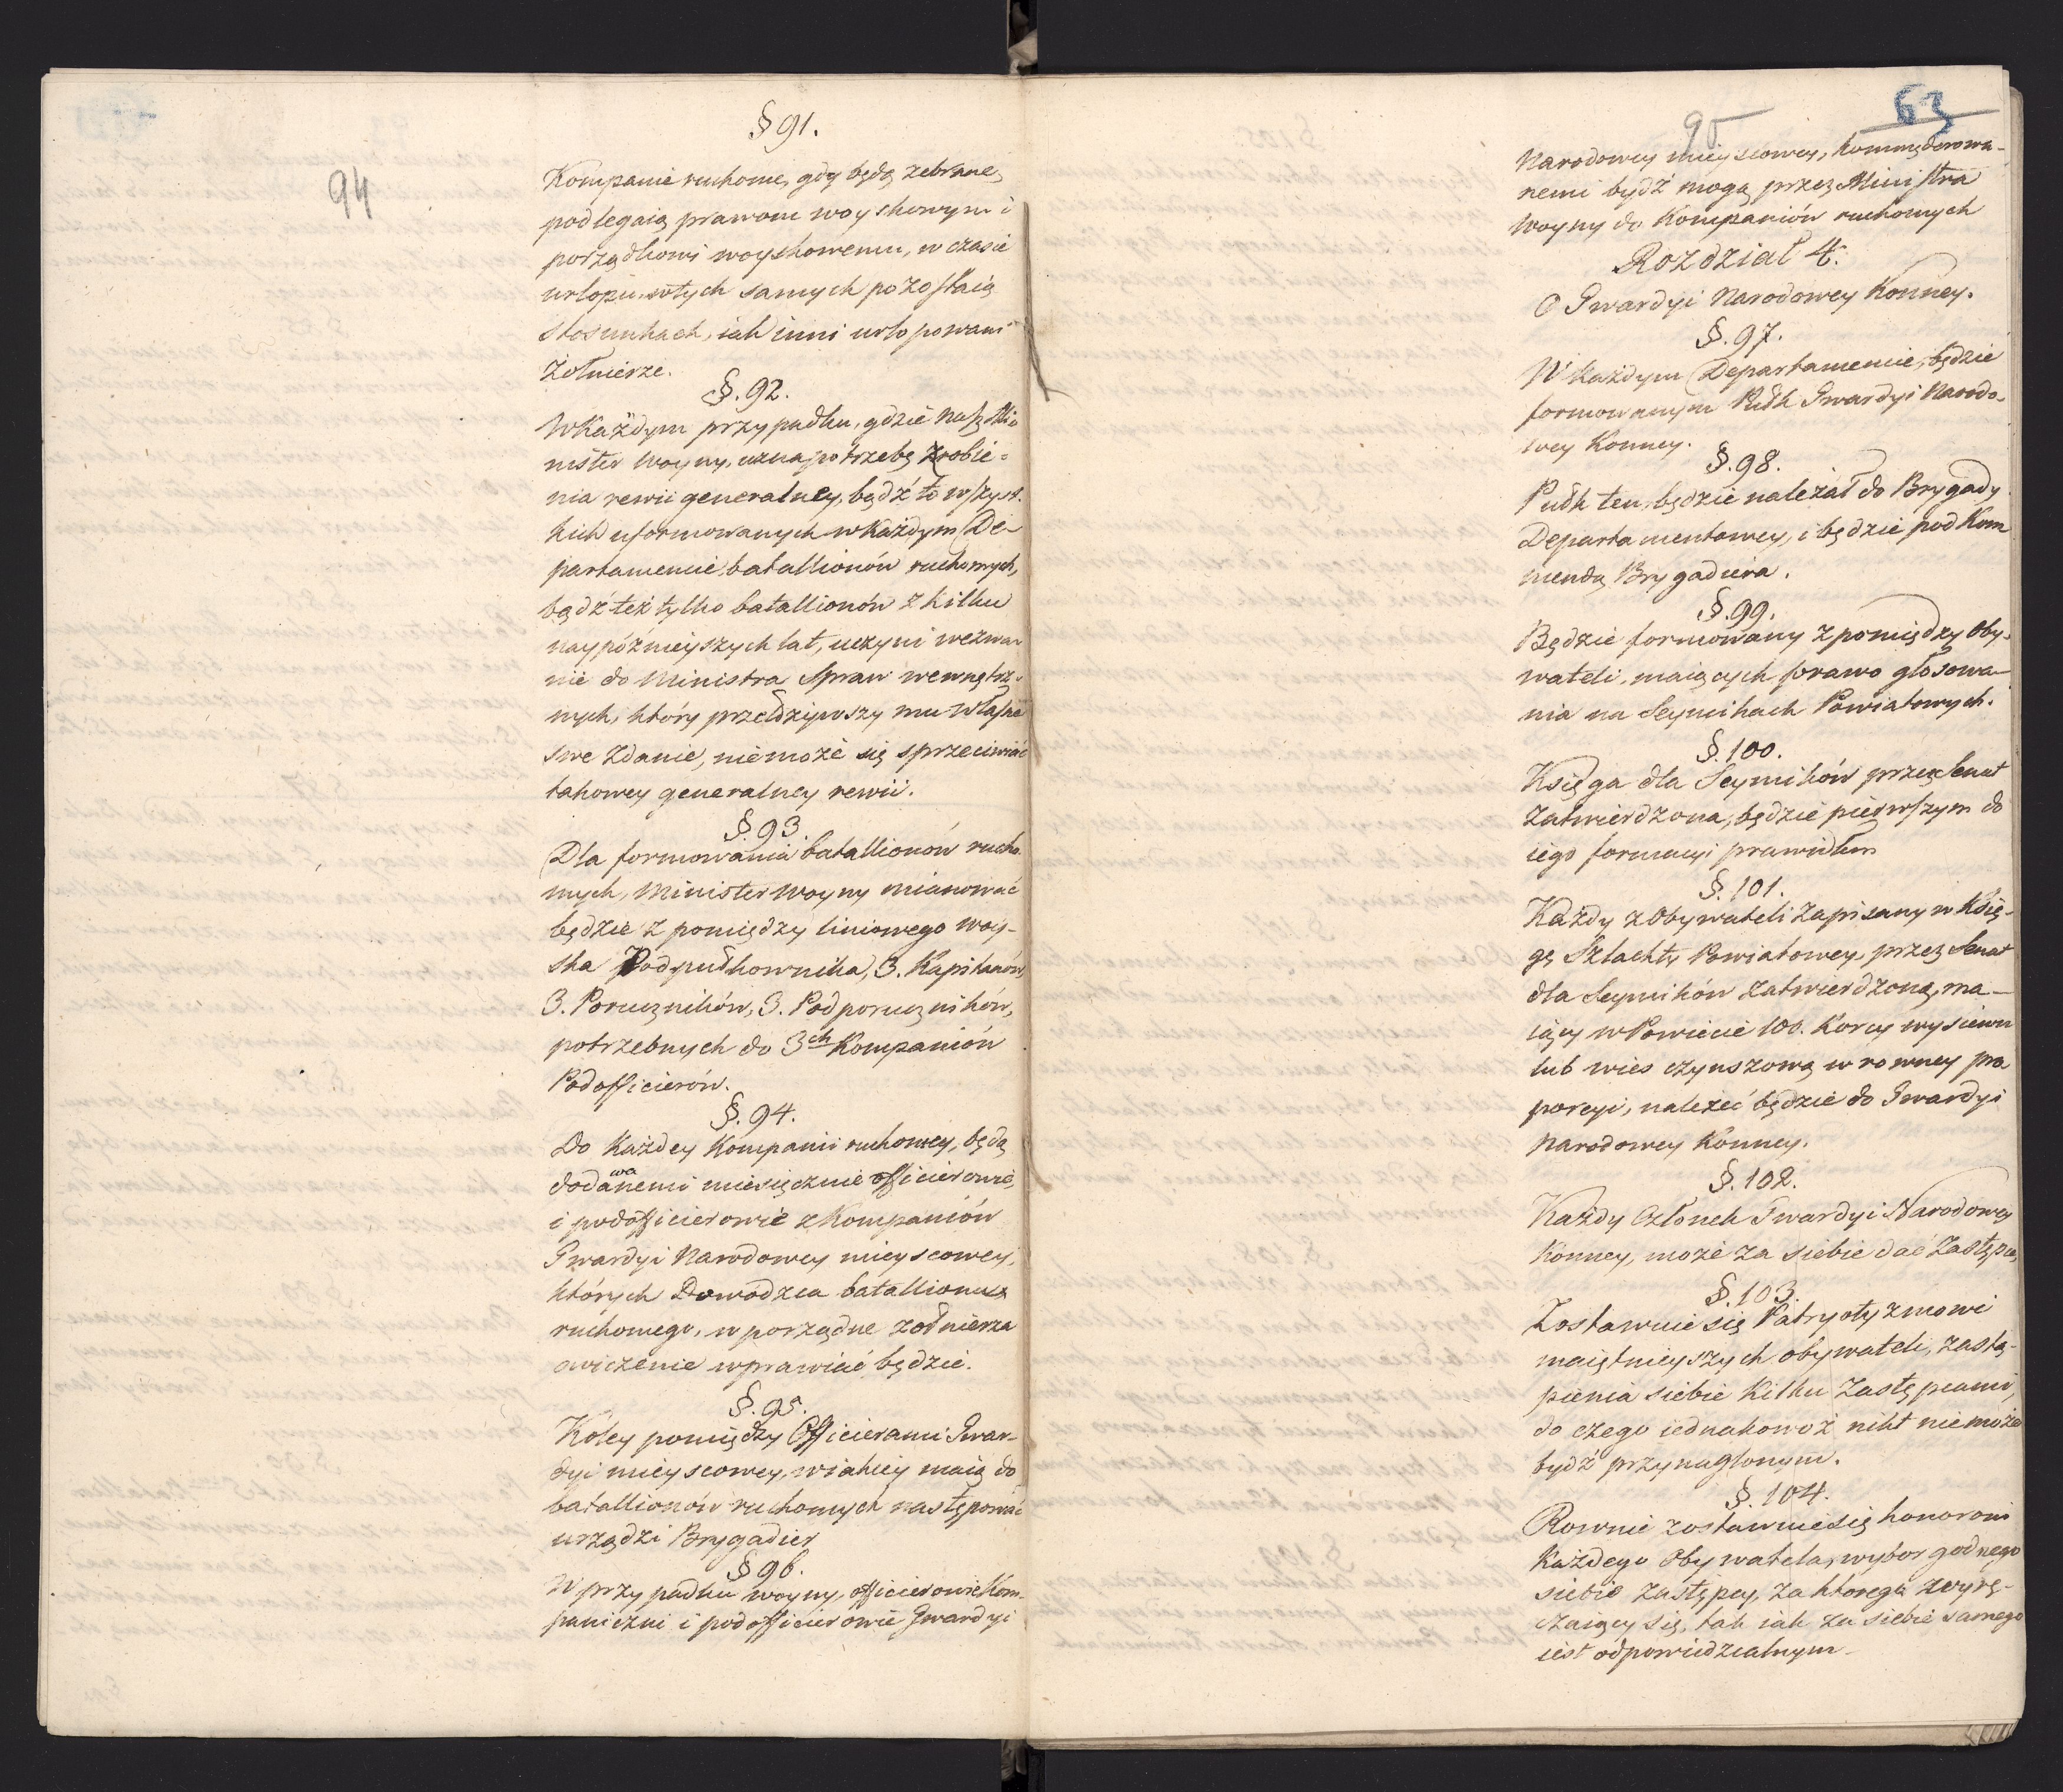 94
§ 91.
Kompanie ruchome, gdy będą zebrane,
podlegaią prawom woyskowym i
porządkowi woyskowemu, w czasie
urlopu, wtych samych pozostaią
stosunkach, iak inni urlopowani
Żołnierze.
§. 92.
W Każdym przypadku, gdzie Nasz Mi-
nister Woyny, uzna potrzebę zrobie-
nia rewii generalney, bądź to wszyst-
kich uformowanych w Każdym De-
partamencie batallionów ruchomych,
bądź też tylko batallionów z kilku
naypóźnieyszych lat, uczyni wezwa-
nie do Ministra Spraw wewnętrz-
nych, który przełożywszy mu własne
swe zdanie, niemoże się sprzeciwiać
takowey generalney rewii.
§. 93.
Dla formowania batallionów rucho-
mych, Minister Woyny mianować
będzie z pomiędzy liniowego woy-
ska Podpułkownika, 3. Kapitanów,
3. Poruczników, 3. Podporuczników,
potrzebnych do 3ch Kompaniów
Podofficierów.
§. 94.
Do Każdey Kompanii ruchomey, będą
wa
dodanemi miesięcznie officierowie,
i podofficierowie z Kompaniów
Gwardyi Narodowey mieyscowey,
których Dowódzca batallionu
ruchomego, w porządne żołnierza
cwiczenie wprawiać będzie.
§. 95.
Koley pomiędzy Officierami Gwar-
dyi mieyscowey, w iakiey maią do
batallionów ruchomych następować
urządzi Brygadier
§ 96.
W przypadku woyny, officierowie Kom-
paniczni i podofficierowie Gwardyi
95
63
Narodowey mieyscowey, kommęderowa-
nemi bydź mogą przez Ministra
Woyny do Kompaniów ruchomych
Rozdział 4.
O Gwardyi Narodowey Konney.
§. 97.
W każdym Departamencie, będzie
formowanym Pułk Gwardyi Narodo-
wey Konney.
§. 98.
Pułk ten, będzie należał do Brygady
Departamentowey, i będzie pod Kom
mendą Brygadiera.
§. 99.
Będzie formowany z pomiędzy Oby-
wateli, maiących prawo głosowa-
nia na Seymikach Powiatowych.
§. 100.
Księga dla Seymików przez Senat
zatwierdzona, będzie pierwszym do
iego formacyi prawidłem
§. 101.
Każdy z Obywateli zapisany w Księ-
gę Szlachty Powiatowey, przez Senat
dla Seymików zatwierdzoną, ma-
iący w Powiecie 100. Korcy wysiewu
lub wies czynszową w rowney pro
porcyi, należeć będzie do Gwardyi
Narodowey Konney.
§. 102.
Każdy Członek Gwardyi Narodowey
Konney, może za siebie dać Zastępcę,
§. 103.
Zostawuie się Patryotyzmowi
maiętnieyszych obywateli, zastą-
pienia siebie kilku Zastępcami,
do czego iednakowoż nikt niemoże
bydź przynaglonym.
§. 104.
Rownie zostawuie się honorowi
Każdego Obywatela, wybor godnego
siebie zastępcy, za ktorego wyrę-
czaiący się, tak iak za siebie samego
iest odpowiedzialnym